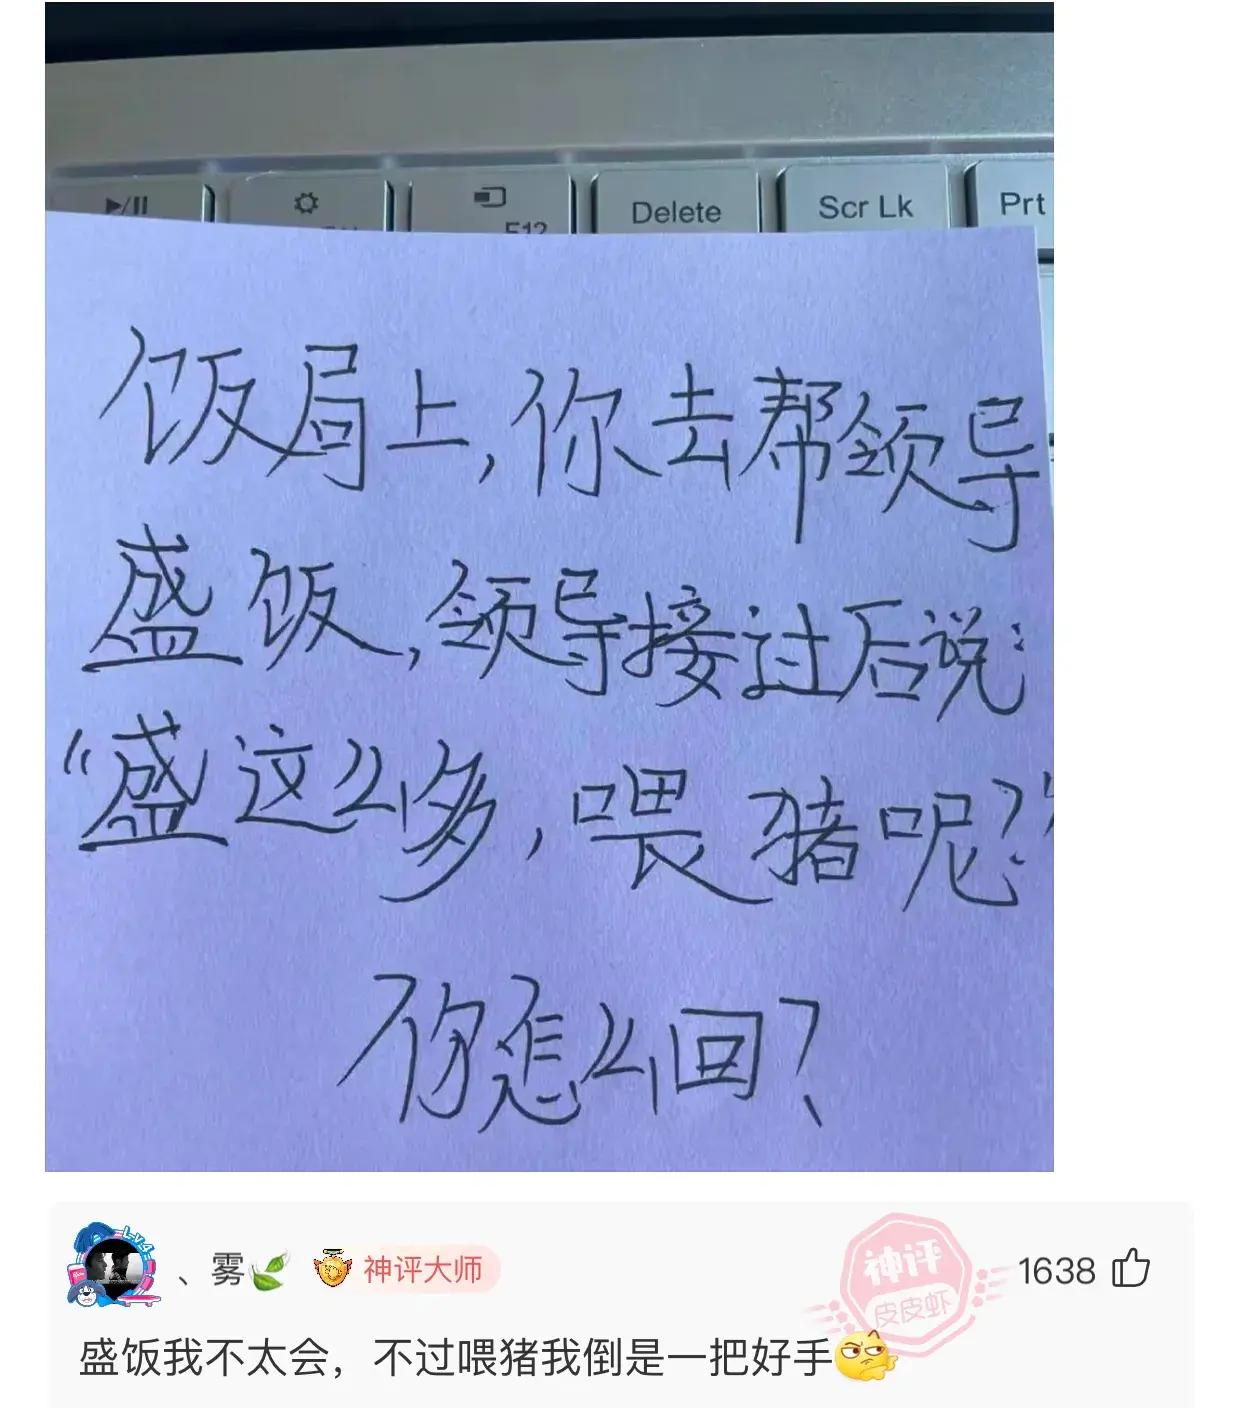 ▶/II
F12
Delete
Scr Lk
Prt
饭局上,你去帮领导
盛饭,领导接过后说:
“盛这么多,喂猪呢?”
你怎么回?
LV4
、雾
神评大师
神评
皮皮虾
1638
盛饭我不太会，不过喂猪我倒是一把好手